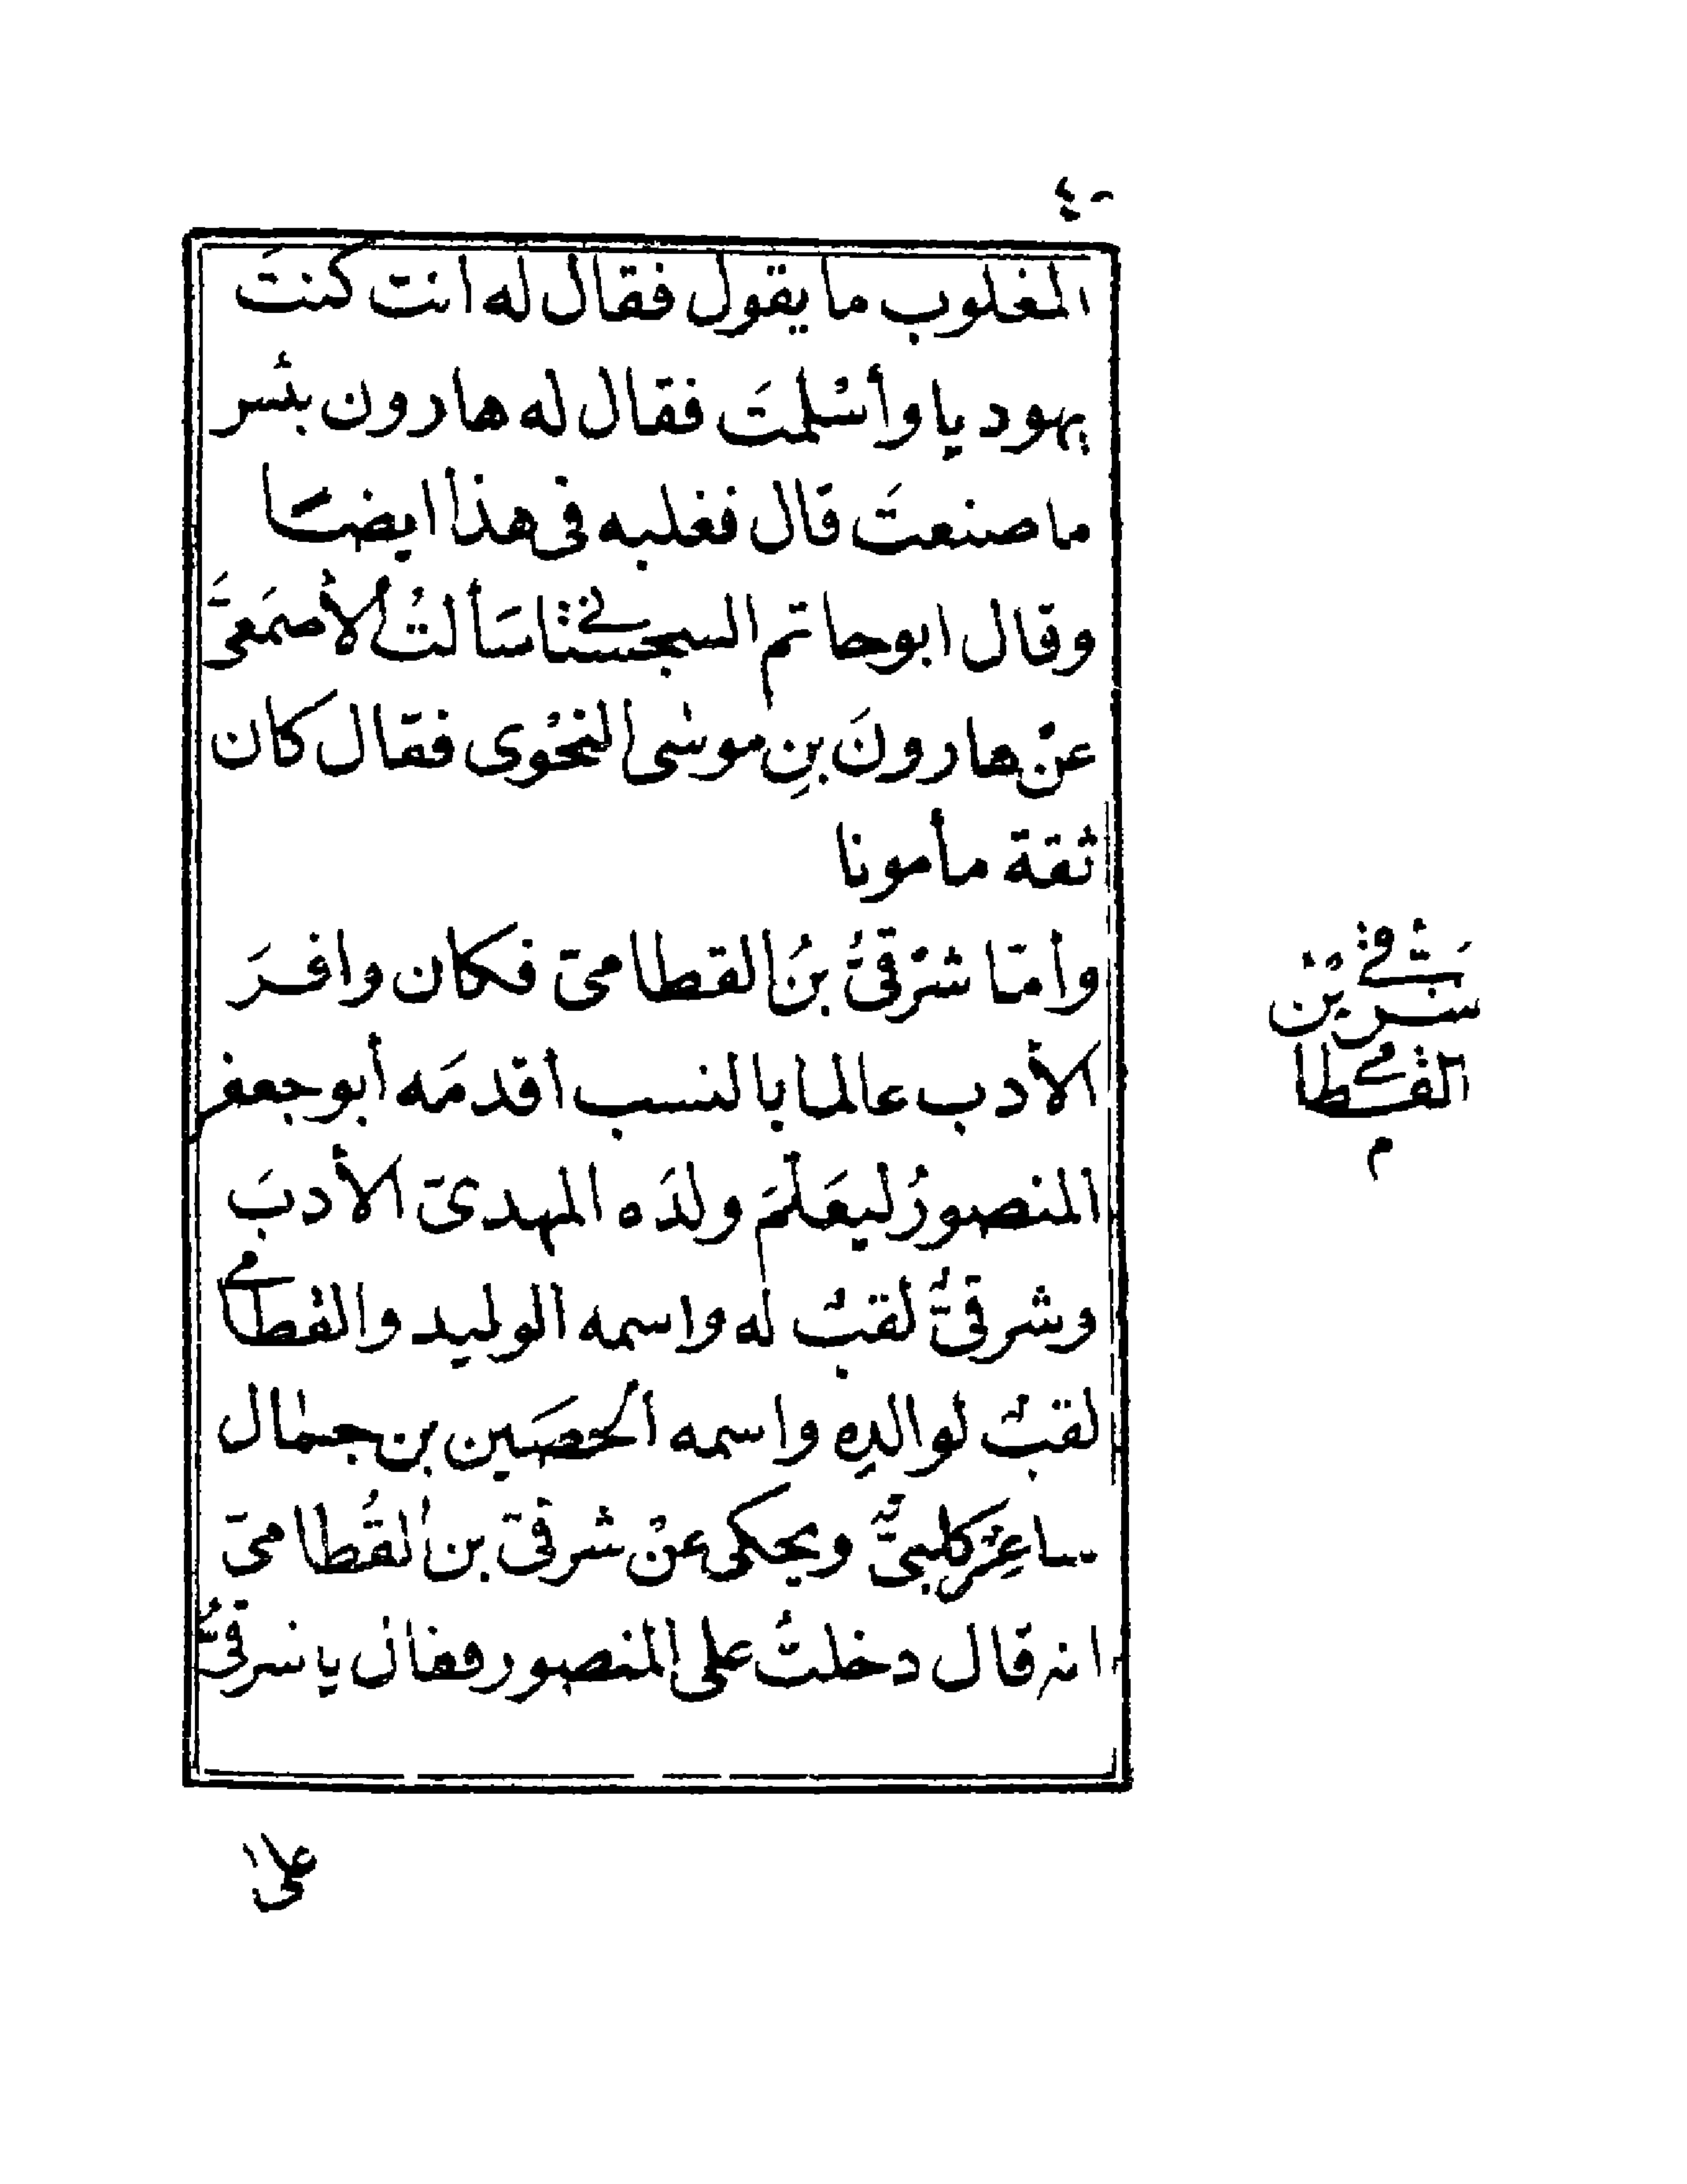 ٤٠
المغلوب ما يقول فقال له انت كنتَ
يهوديا وأسْلمتَ فقال له هارون بئسر
ما صنعتَ قال فغلبه فى هذا ايضًا
وقال ابو حاتم السجستانى سَألتُ الأصمَعىَّ
عنْ هارونَ بنِ موسٰى النحْوى فقال كان
ثقة مأمونا
وأمّا شرْقىُّ بنُ القطامىّ فكان وافرَ
الأدب عالما بالنسب أقدمَه أبو جعفر
المنصورُ ليعَلّمَ ولدَه المهدىّ الأدبَ
وشرقىٌّ لقبٌ له واسمه الوليد والقُطامى
لقبٌ لوالدِه واسمه الحصَين بن جمال
ساعِرٌ كلبىٌّ ويحكى عنْ شرقىّ بن القُطامىّ
انه قال دخلتُ على المنصور فقال يا شرقىُّ
شَرْقى بْنُ
القطامى
م
علىٰ